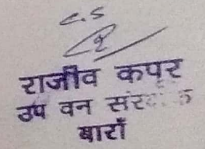 राजीव कपूर
उप वन संरक्षक
बारॉं